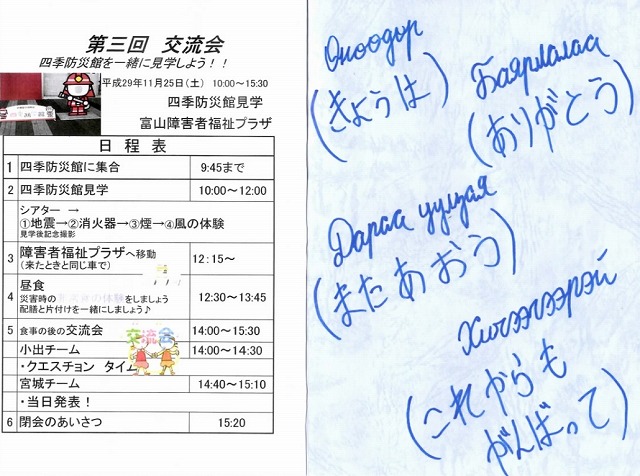 第三回 交流会
四季防災館を一緒に見学しよう！！
平成29年11月25日（土） 10:00～15:30
四季防災館見学
富山障害者福祉プラザ
日 程 表
1 四季防災館に集合 9:45まで
2 四季防災館見学 10:00～12:00
シアター →
①地震→②消火器→③煙→④風の体験
見学後記念撮影
3 障害者福祉プラザへ移動 12:15～
（来たときと同じ車で）
4 昼食 12:30～13:45
災害時の をしましょう
配膳と片付けを一緒にしましょう♪
5 食事の後の交流会 14:00～15:30
交流会
小出チーム 14:00～14:30
・クエスチョン タイム
宮城チーム 14:40～15:10
・当日発表！
6 閉会のあいさつ 15:20
Өнөөдөр
(きょうは)
Баярлалаа
(ありがとう)
Дараа уулзая
(またあおう)
Хичээгээрэй
(これからも
がんばって)